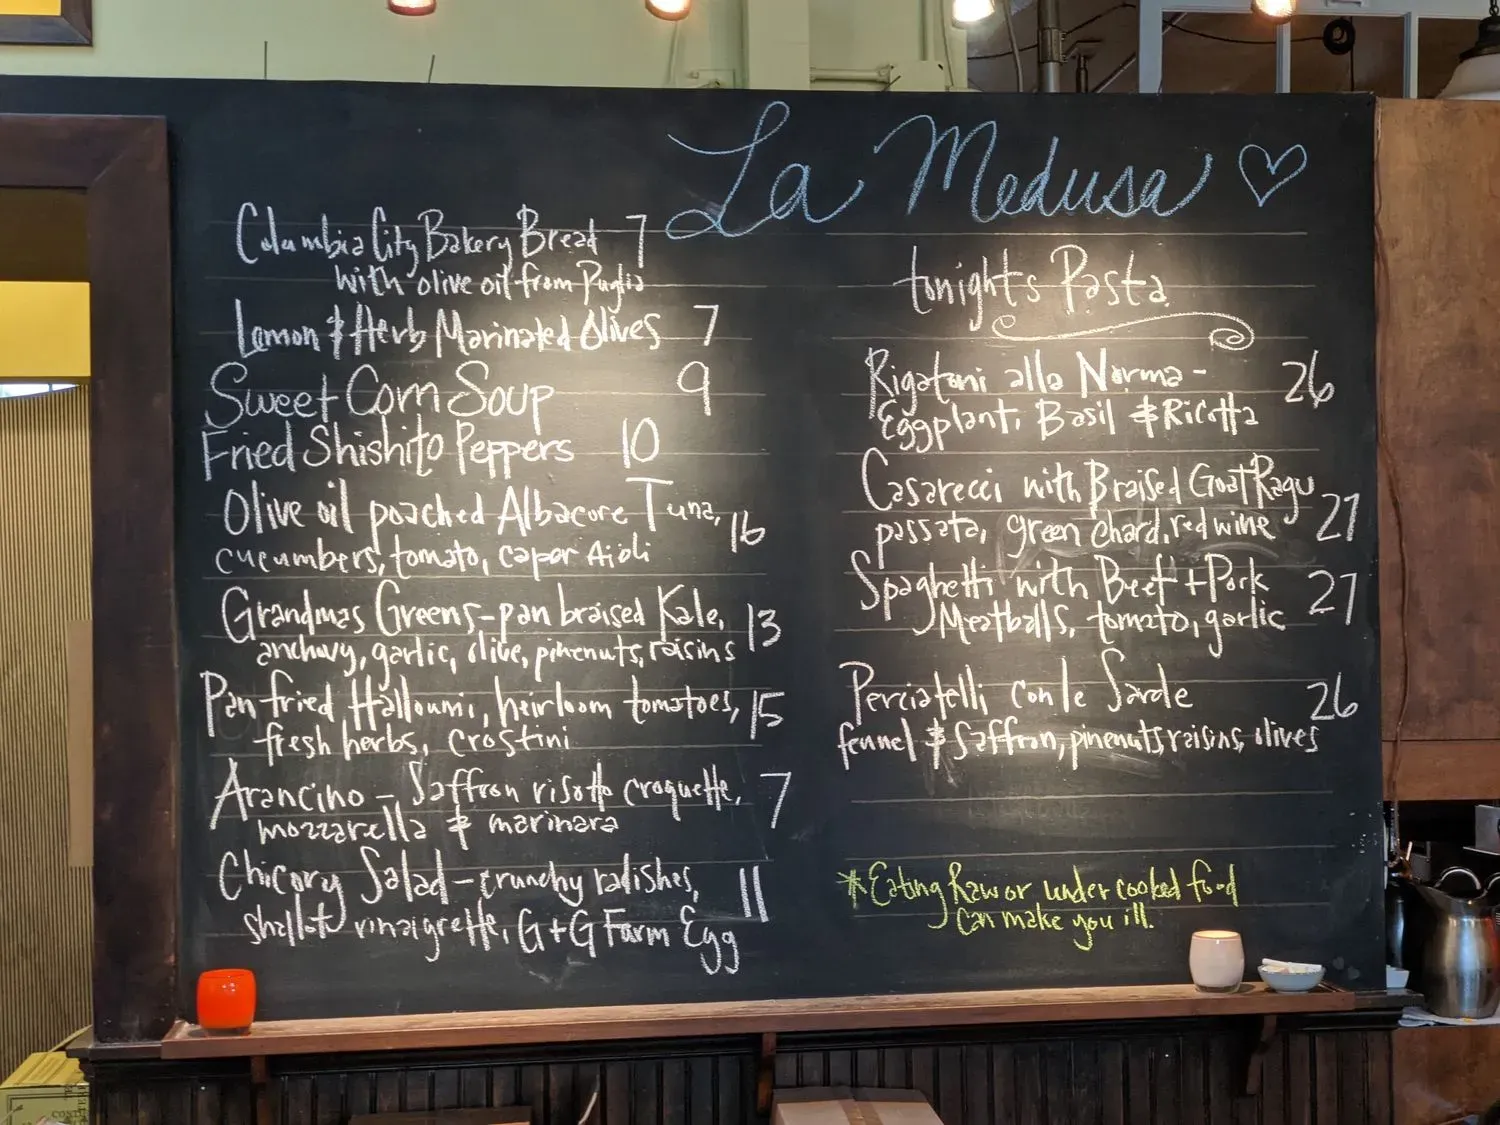 La Medusa
Columbia City Bakery Bread 7
with olive oil from Puglia
Lemon & Herb Marinated Olives 7
Sweet Corn Soup 9
Fried Shishito Peppers 10
Olive oil poached Albacore Tuna, 16
cucumbers, tomato, caper Aioli
Grandmas Greens-pan braised Kale, 13
anchovy, garlic, olive, pinenuts, raisins
Pan fried Halloumi, heirloom tomatoes, 15
fresh herbs, crostini
Arancino - Saffron risotto croquette, 7
mozzarella & marinara
Chicory Salad - crunchy radishes, 11
shallot vinaigrette, G+G Farm Egg
tonights Pasta
Rigatoni alla Norma - 26
Eggplant, Basil & Ricotta
Casarecci with Braised Goat Ragu
passata, green chard, red wine 27
Spaghetti with Beef + Pork 27
Meatballs, tomato, garlic
Perciatelli con le Sarde 26
fennel & Saffron, pinenuts raisins, olives
*Eating Raw or under cooked food
can make you ill.